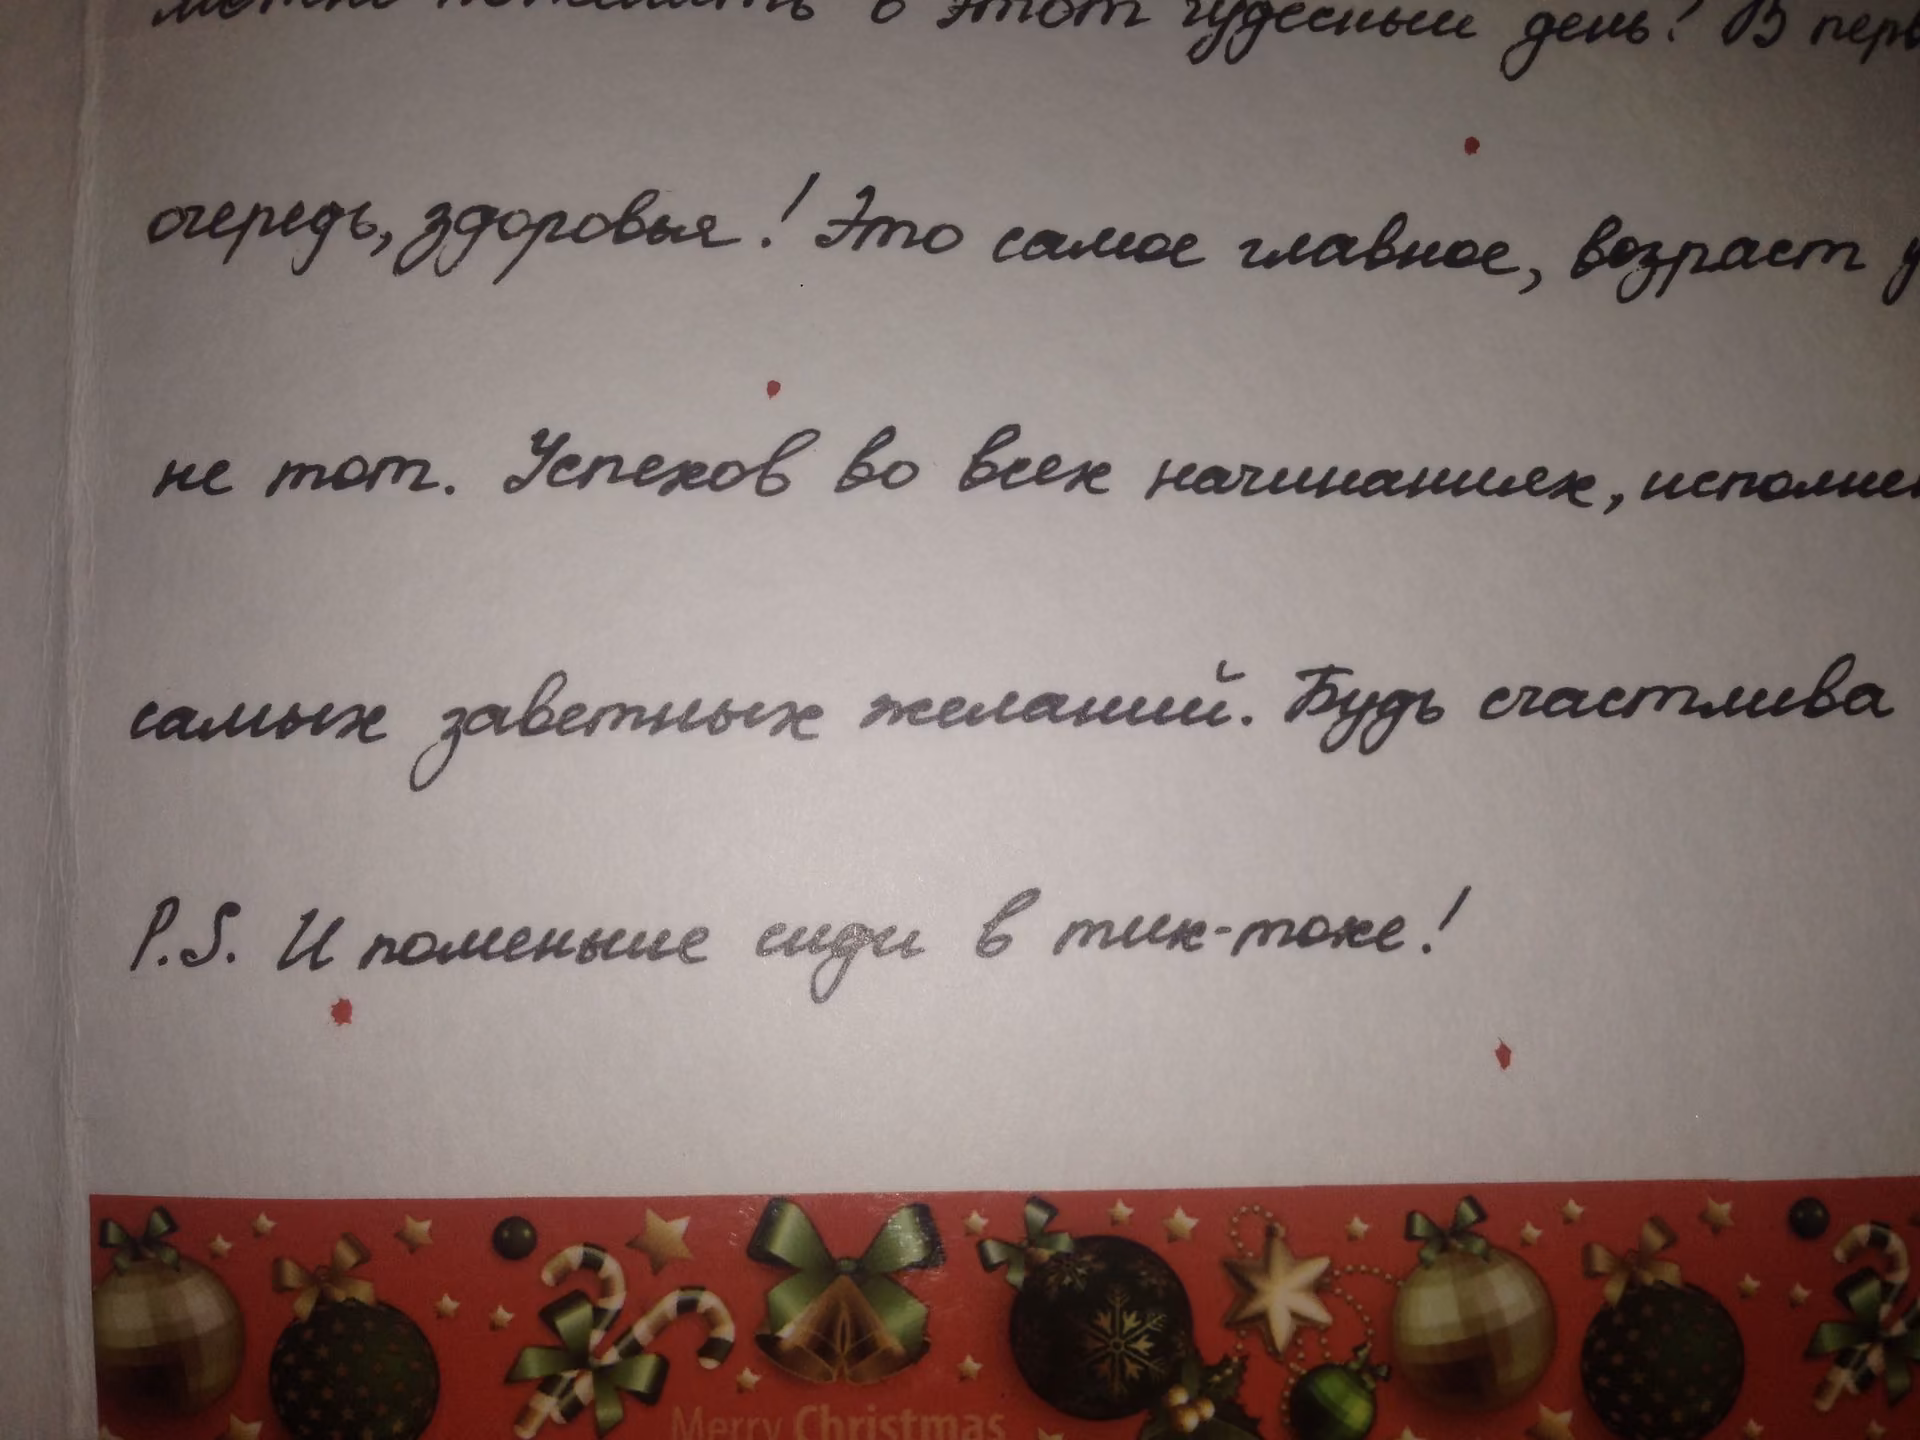 можно пожелать в этот чудесный день? В перв
очередь, здоровья! Это самое главное, возраст у
не тот. Успехов во всех начинаниях, исполнен
самых заветных желаний. Будь счастлива
P.S. И поменьше сиди в тик-токе!
Merry Christmas